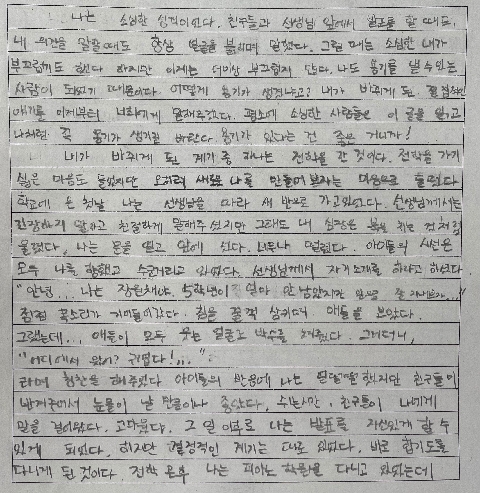 나는 소심한 성격이었다. 친구들과 선생님 앞에서 발표를 할 때도,
내 의견을 말할 때도 항상 얼굴을 붉히며 말했다. 그럴 때에는 소심한 내가
부끄럽기도 했다 하지만 이제는 더이상 부끄럽지 않다. 나도 용기를 낼 수 있는
사람이 되었기 때문이다. 어떻게 용기가 생겼냐고? 내가 바뀌게 된
얘기를 이제부터 너희에게 말해주겠다. 평소에 소심한 사람들은 이 글을 읽고
나처럼 꼭 용기가 생기길 바란다 용기가 있다는 건 좋은 거니까!
내가 바뀌게 된 계기 중 하나는 전학을 간 것이다. 전학을 가기
싫은 마음도 들었지만 오히려 새로운 나를 만들어보자는 마음으로 들렸다
학교에 온 첫날 나는 선생님을 따라 새 반으로 가고 있었다. 선생님께서는
긴장하지 말라고 친절하게 말해주셨지만 그래도 내 심장은 북을 치는 것처럼
울렸다, 나는 문을 열고 앞에 섰다. 너무나 떨렸다. 아이들의 시선은
모두 나를 향했고 수군거리고 있었다. 선생님께서 자기소개를 하라고 하셨다
"안녕... 나는 장원채야. 5학년이 얼마 안 남았지만 앞으로 잘 지내보자..."
점점 목소리가 기어들어갔다. 침을 꼴깍 삼키며 애들을 보았다.
그랬는데... 애들이 모두 웃는 얼굴로 박수를 쳐줬다. 그러더니,
"어디에서 왔어? 귀엽다!..."
라며 칭찬을 해주었다 아이들의 반응에 나는 얼떨떨했지만 친구들이
반겨주어서 눈물이 날 만큼이나 좋았다. 수많은 친구들이 나에게
말을 걸어줬다. 고마웠다. 그 일 이후로 나는 발표를 자신있게 할 수
있게 되었다. 하지만 결정적인 계기는 따로 있었다. 바로 합기도를
다니게 된 것이다. 전학 온 후 나는 피아노 학원을 다니고 있었는데